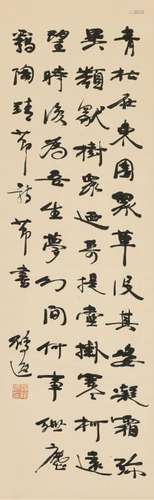 青松在東園眾草沒其姿凝霜殄
異類獨樹眾迺奇提壺掛寒柯遠
望時復為吾生夢幻間何事紲塵
羈陶靖節詩節書